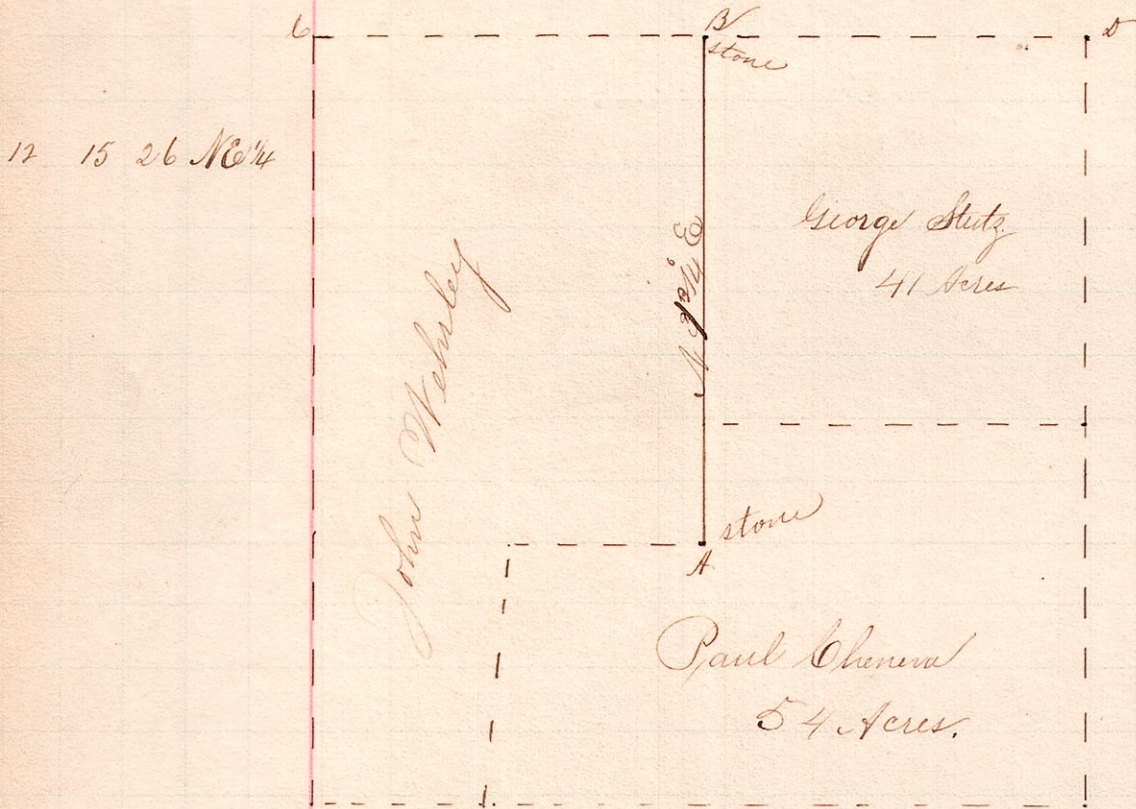 C
B
D
stone
12 15 26 NE 1/4
George Stutz
41 Acres
John Wehrley
stone
A
Paul Cheneva
54 Acres.